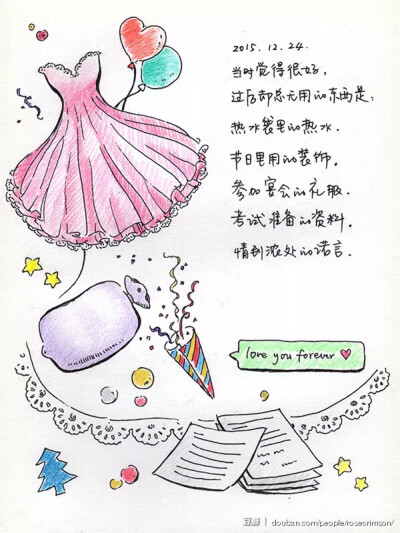 2015.12.24.
当时觉得很好,
过后却总无用的东西是:
热水袋里的热水.
节日里用的装饰.
参加宴会的礼服.
考试准备的资料.
情到浓处的诺言.
love you forever ♥
豆瓣 douban.com/people/rosecrimson/